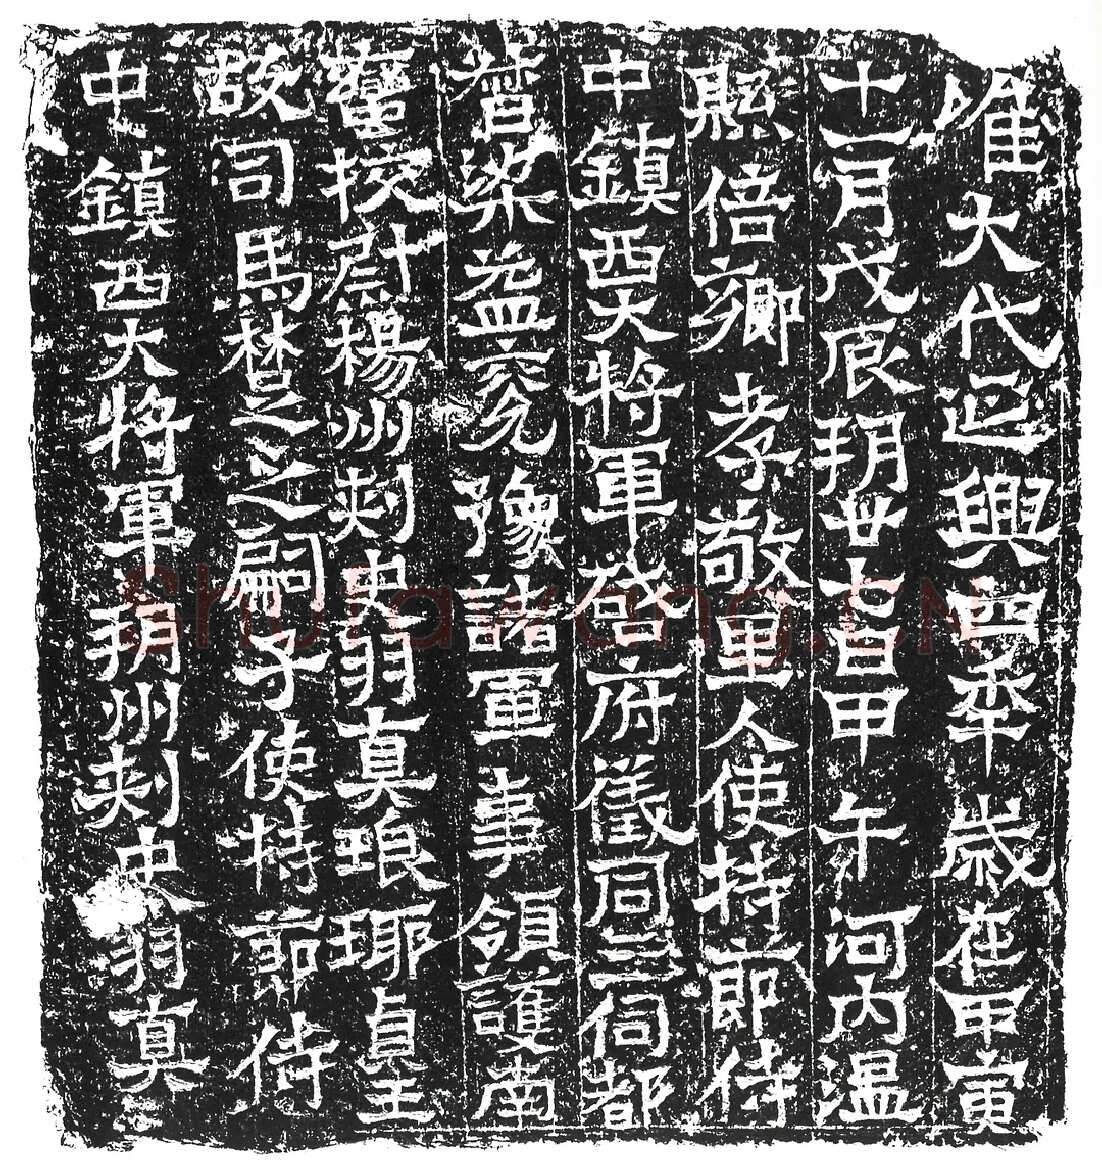 唯大代延興四年歲在甲寅
十一月戊辰朔廿七日甲午河內溫
縣倍鄉孝敬里人使持節侍
中鎮西大將軍啓府儀同三伺都
督梁益兗豫諸軍事領護南
蠻校尉楊州刺史羽真琅琊貞王
故司馬楚之之嗣子使持節侍
中鎮西大將軍朔州刺史羽真
Shufawang.CN